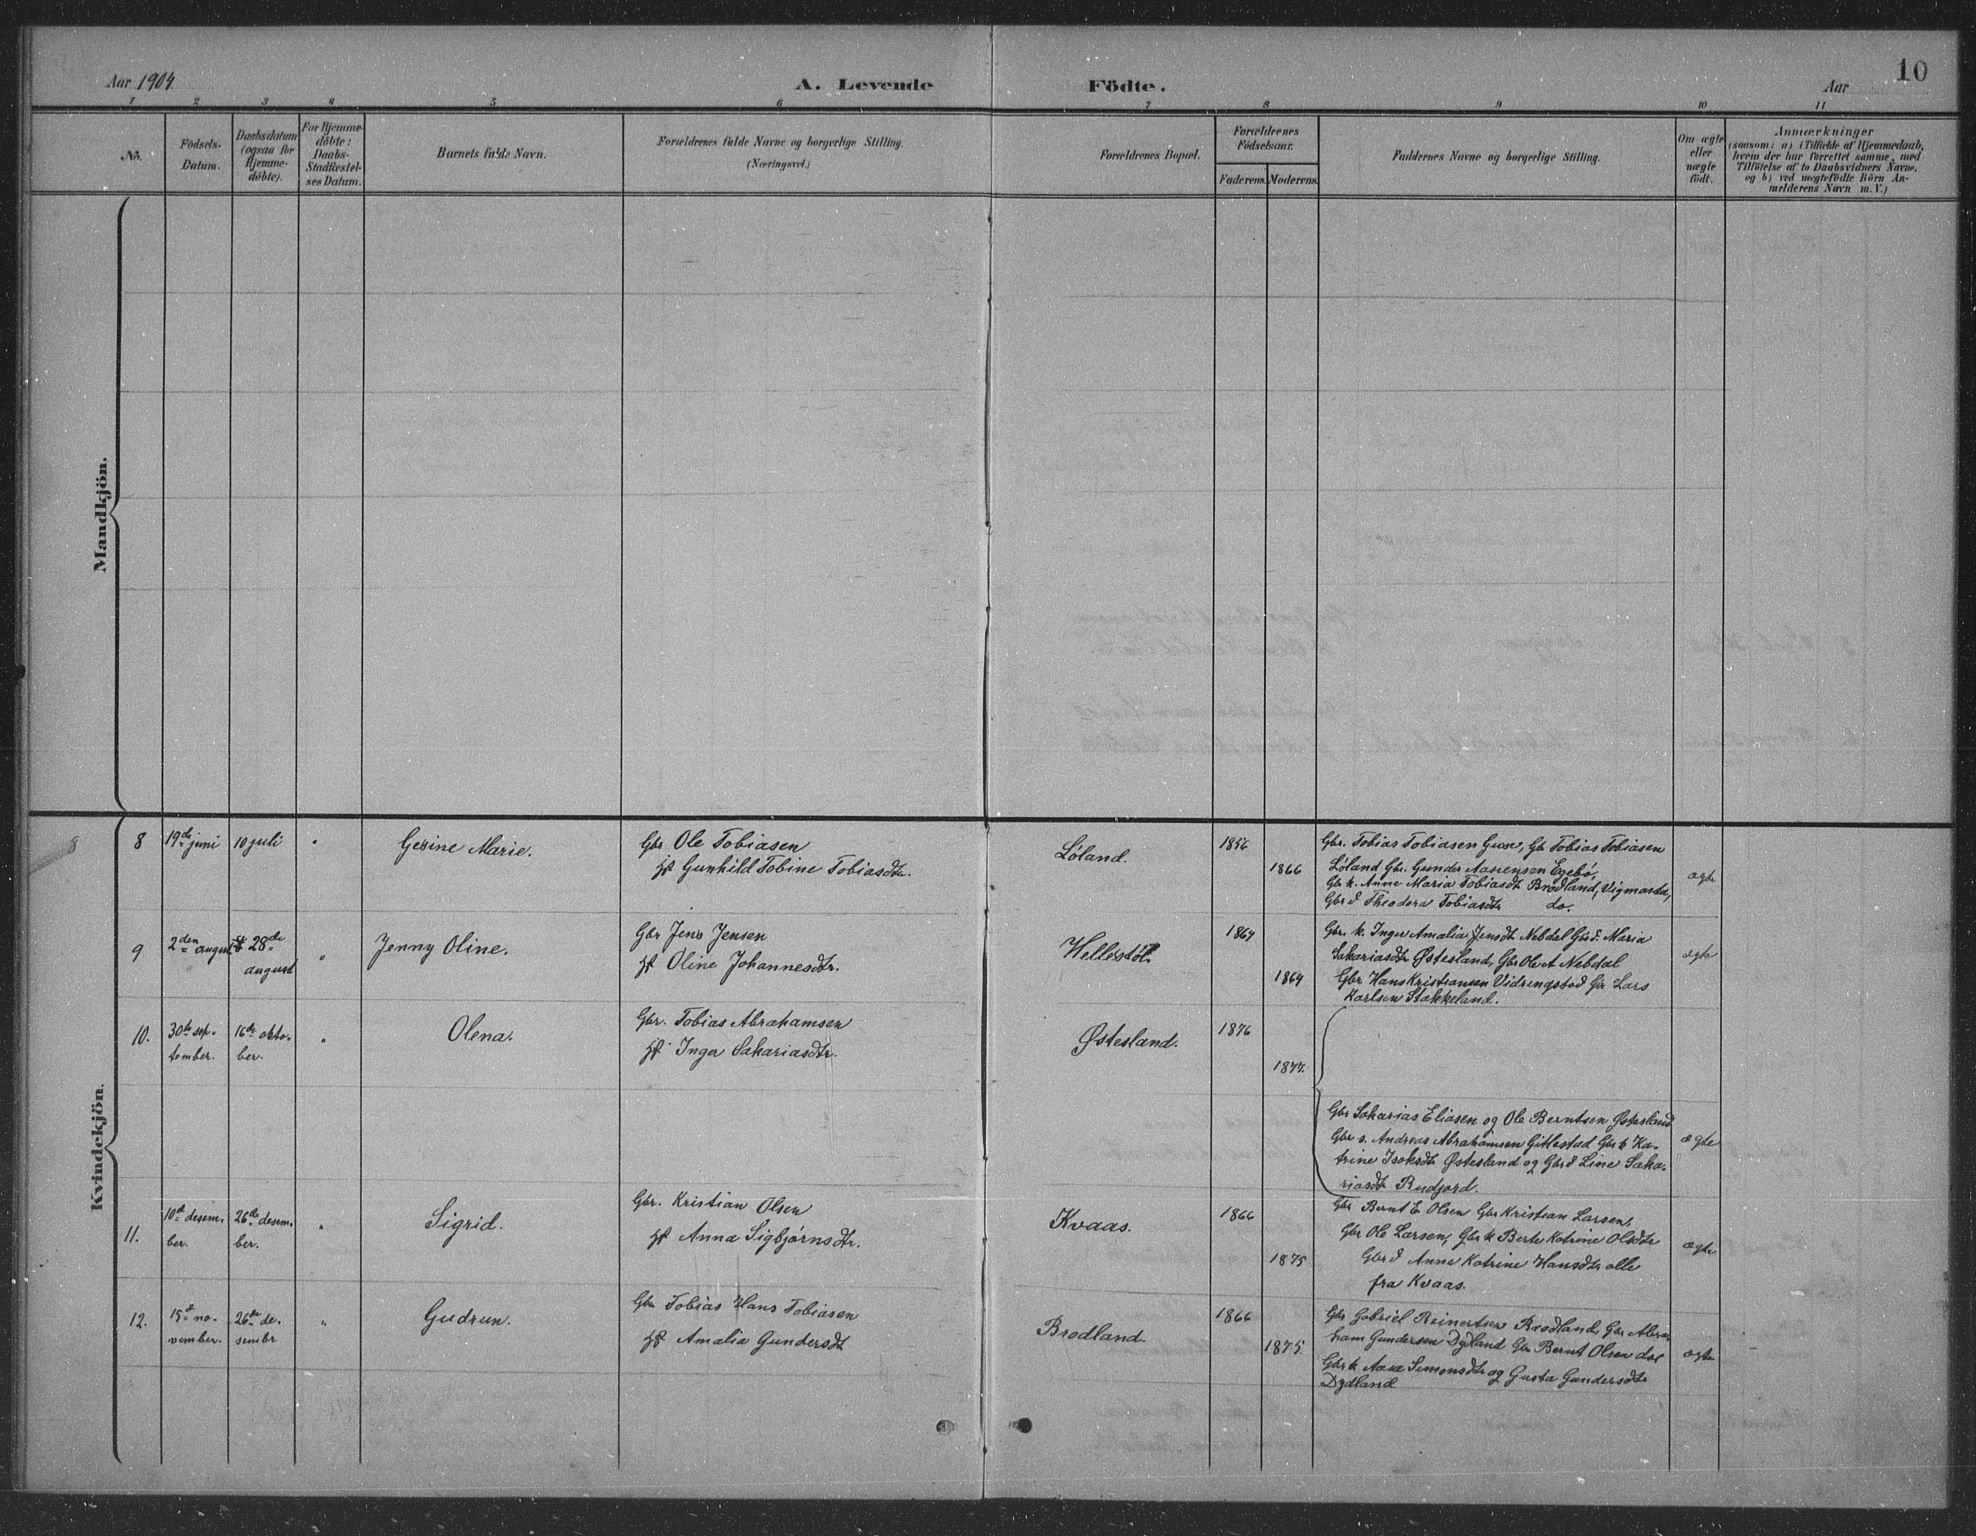 Aar 1904.
A. Levende
Födte.
Aar
10
1 2 3 4 5 6 7 8 9 10 11
No.
Födsels-
Datum.
Daabsdatum
(ogsaa for
Hjemme-
döbte).
For Hjemme-
döbte:
Daabs-
Stadfæstel-
ses Datum.
Barnets fulde Navn.
Forældrenes fulde Navne og borgerlige Stilling.
(Næringsvei.)
Forældrenes Bopæl.
Forældrenes
Födselsaar.
Faderens.
Moderens.
Faddernes Navne og borgerlige Stilling.
Om ægte
eller
uægte
födt.
Anmærkninger
(saasom: a) i Tilfælde af Hjemmedaab,
hvem der har forrettet samme, med
Tilföielse af to Daabsvidners Navne,
og b) ved uægtefödte Börn An-
melderens Navn m. V.)
Mandkjön.
Kvindekjön.
8
8
19de juni
10 juli
"
Gesine Marie.
Gbr Ole Tobiasen
Hst Gunhild Tobine Tobiasdtr.
Løland.
1856
1866
Gbr. Tobias Tobiasen Guse, Gbr Tobias Tobiasen
Løland Gbr. Gunder Aanensen Egebø,
Gbr k. Anne Maria Tobiasdt Brødland, Vigmostad,
Gbr d Theodora Tobiasdtr do.
ægte
9
2den august
28de
august
"
Jenny Oline.
Gbr Jens Jensen
Hst Oline Johannesdtr.
Hellestøl.
1864
1864
Gbr. k. Inger Amalia Jensdt Nebdal Gbr d. Maria
Sakariasdtr Østesland, Gbr Ole A Nebdal
Gbr Hans Kristiansen Vidringstad Gbr Lars
Karlsen Stakkeland.
ægte
10.
30te sep-
tember.
16de okto-
ber.
"
Olena.
Gbr. Tobias Abrahamsen
Hst Inger Sakariasdtr.
Østesland.
1876
1877.
Gbr Sakarias Eliasen og Ole Berntsen Østesland
Gbr s. Andreas Abrahamsen Gitlestad Gbr k Ka-
trine Isaksdtr Østesland og Gbr d Line Saka-
riasdt Rudjord.
ægte
11.
10de desem-
ber.
26de desem-
ber.
"
Sigrid.
Gbr. Kristian Olsen
Hst Anna Sigbjørnsdtr.
Kvaas.
1866
1875
Gbr Bernt E Olsen Gbr Kristian Larsen,
Gbr Ole Larsen, Gbr k Berte Katrine Olsdtr
Gbr d Anne Katrine Hansdtr alle
fra Kvaas.
ægte
12.
15de no-
vember.
26de de-
sembr
"
Gudrun.
Gbr Tobias Hans Tobiasen
Hst Amalia Gundersdt
Brodland.
1866
1875.
Gbr Gabriel Reinertsen Brodland, Gbr Abra-
ham Gundersen Dydland Gbr Bernt Olsen
Gbr k Aasa Simonsdtr og Gusta Gundersdtr
Dydland
ægte